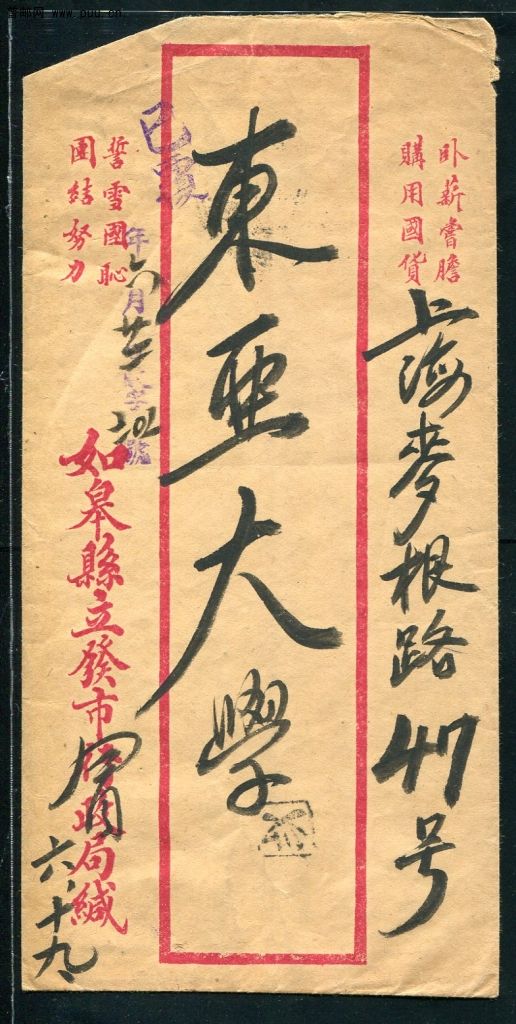 www.puu.cn
卧薪嘗膽
購用國貨
上海麥根路47号
東亜大學
已覆
誓雪國恥
團結努力
年六月廿
號
如皋縣立發市
局緘
六、十九